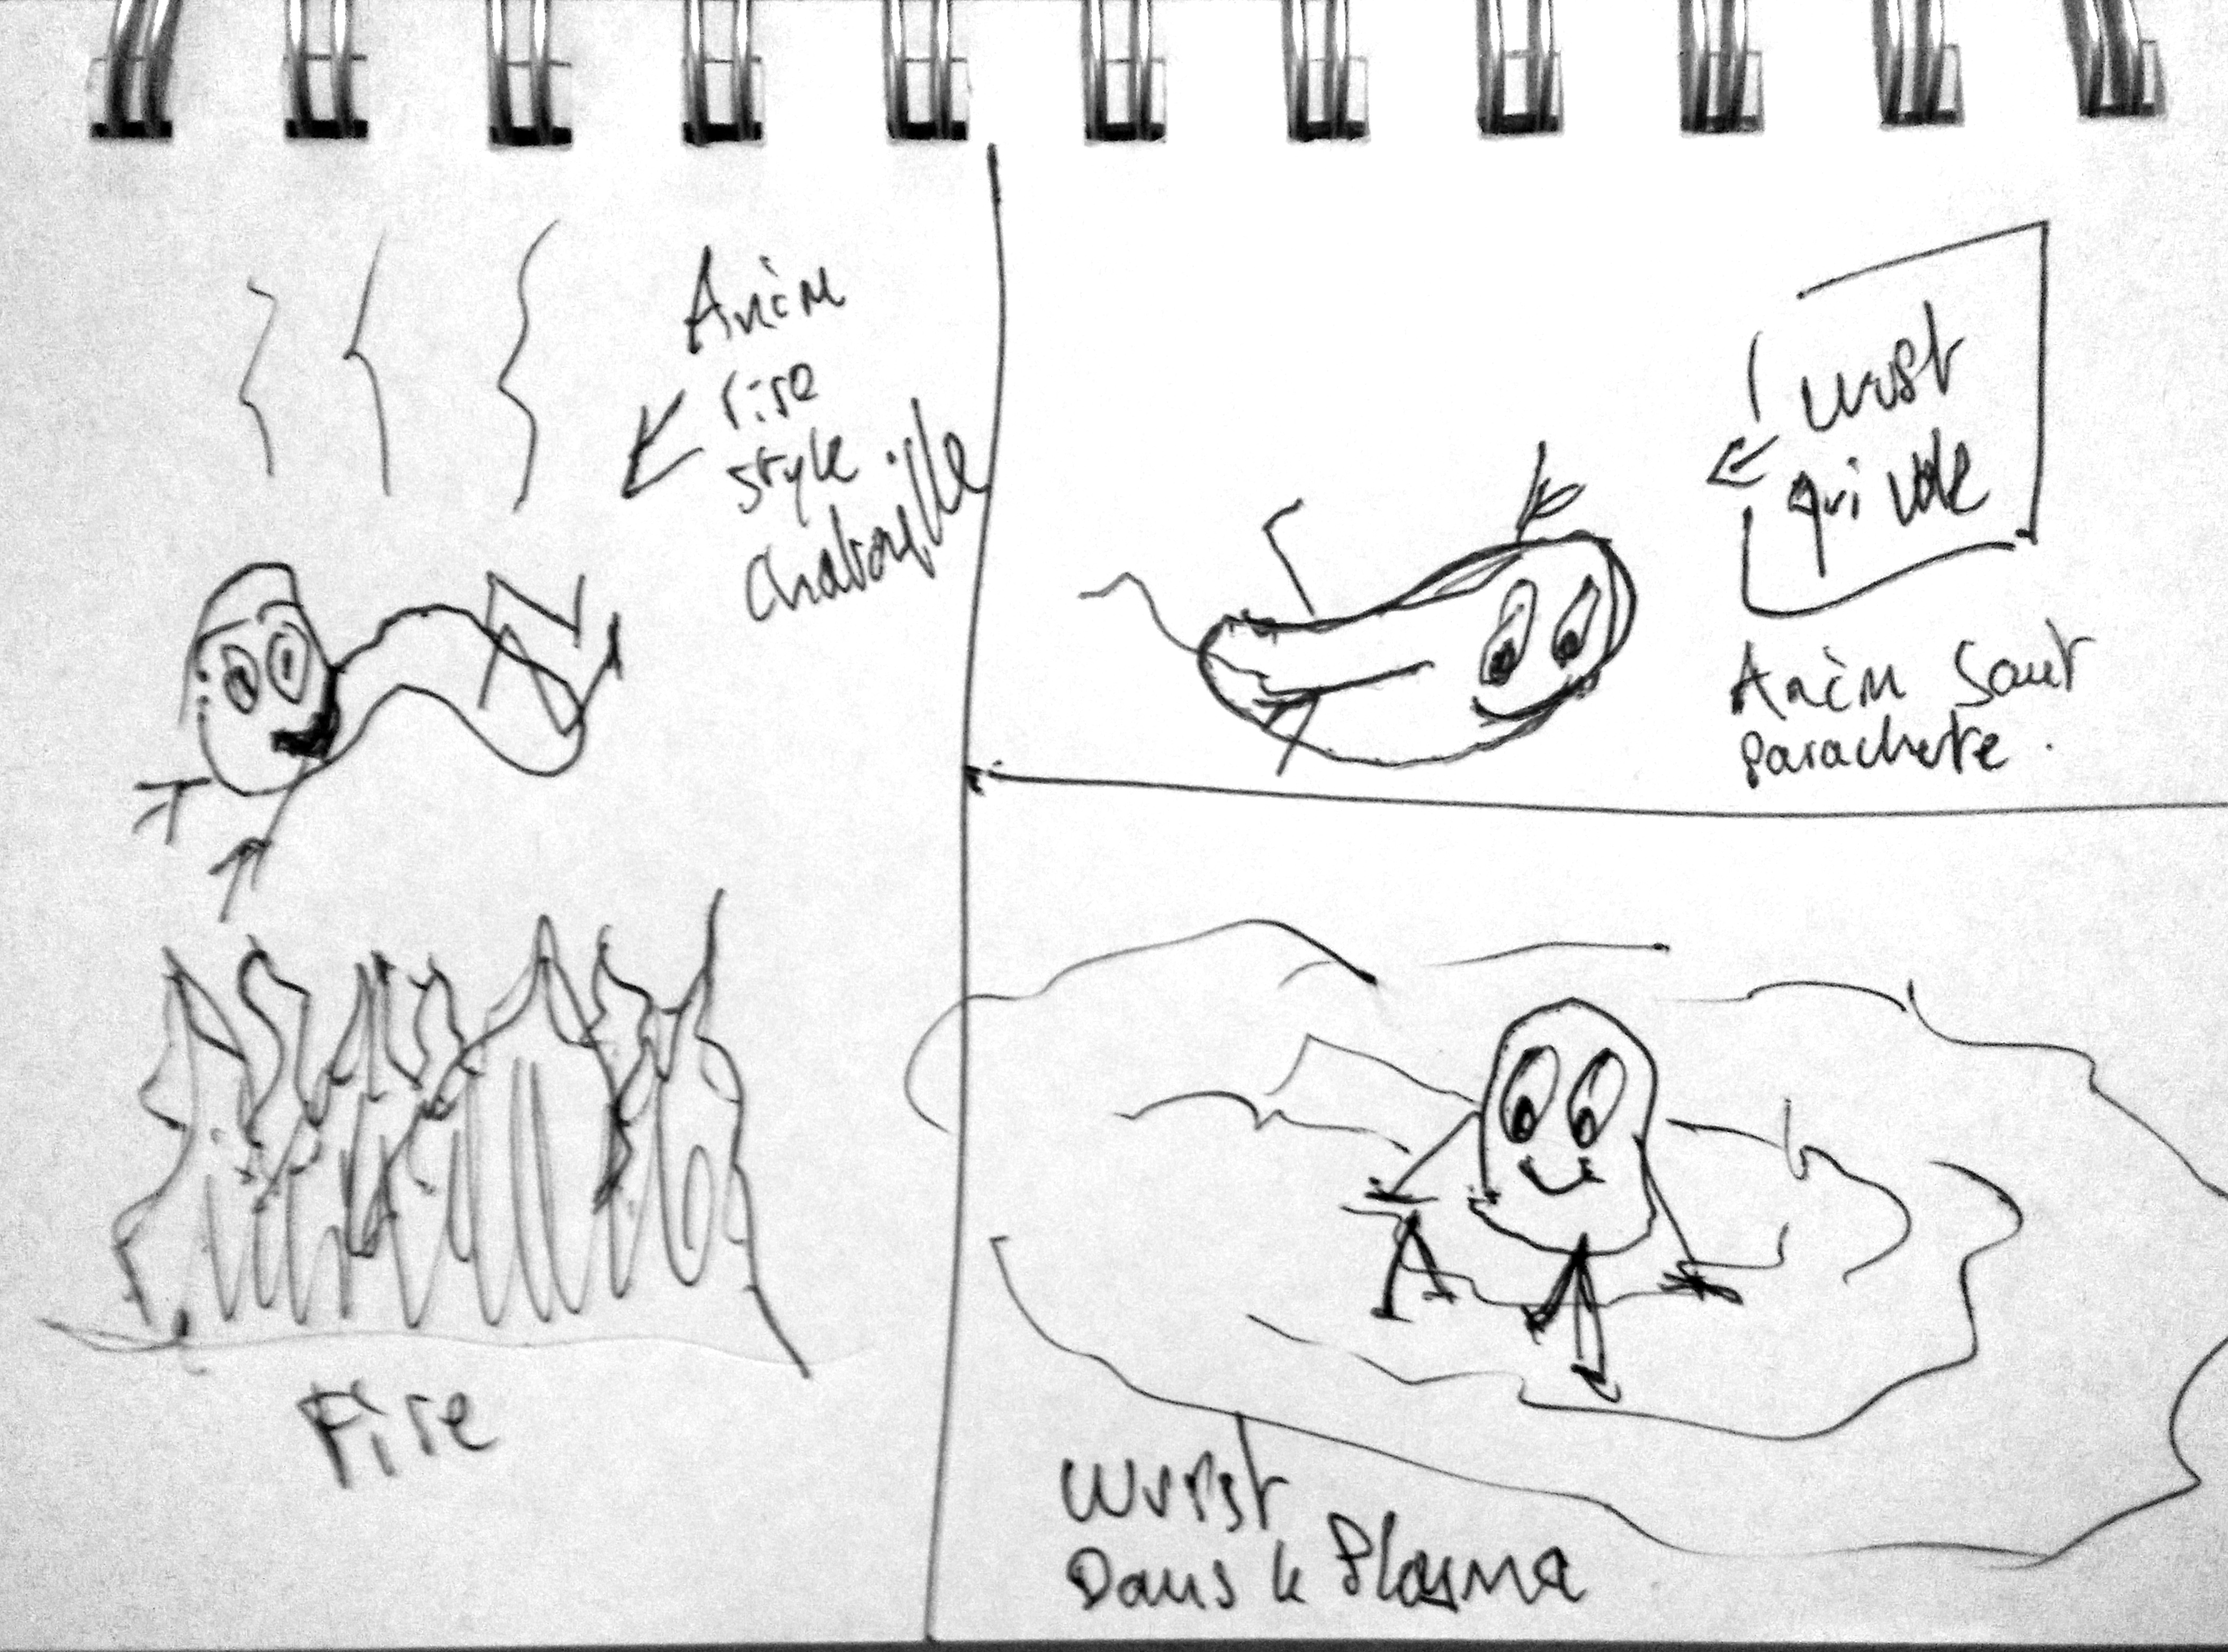 Anim
rire
style
chatouille
Fire
wrst
qui vole
Anim Saut
Parachute.
Wrist
Dans le Plasma